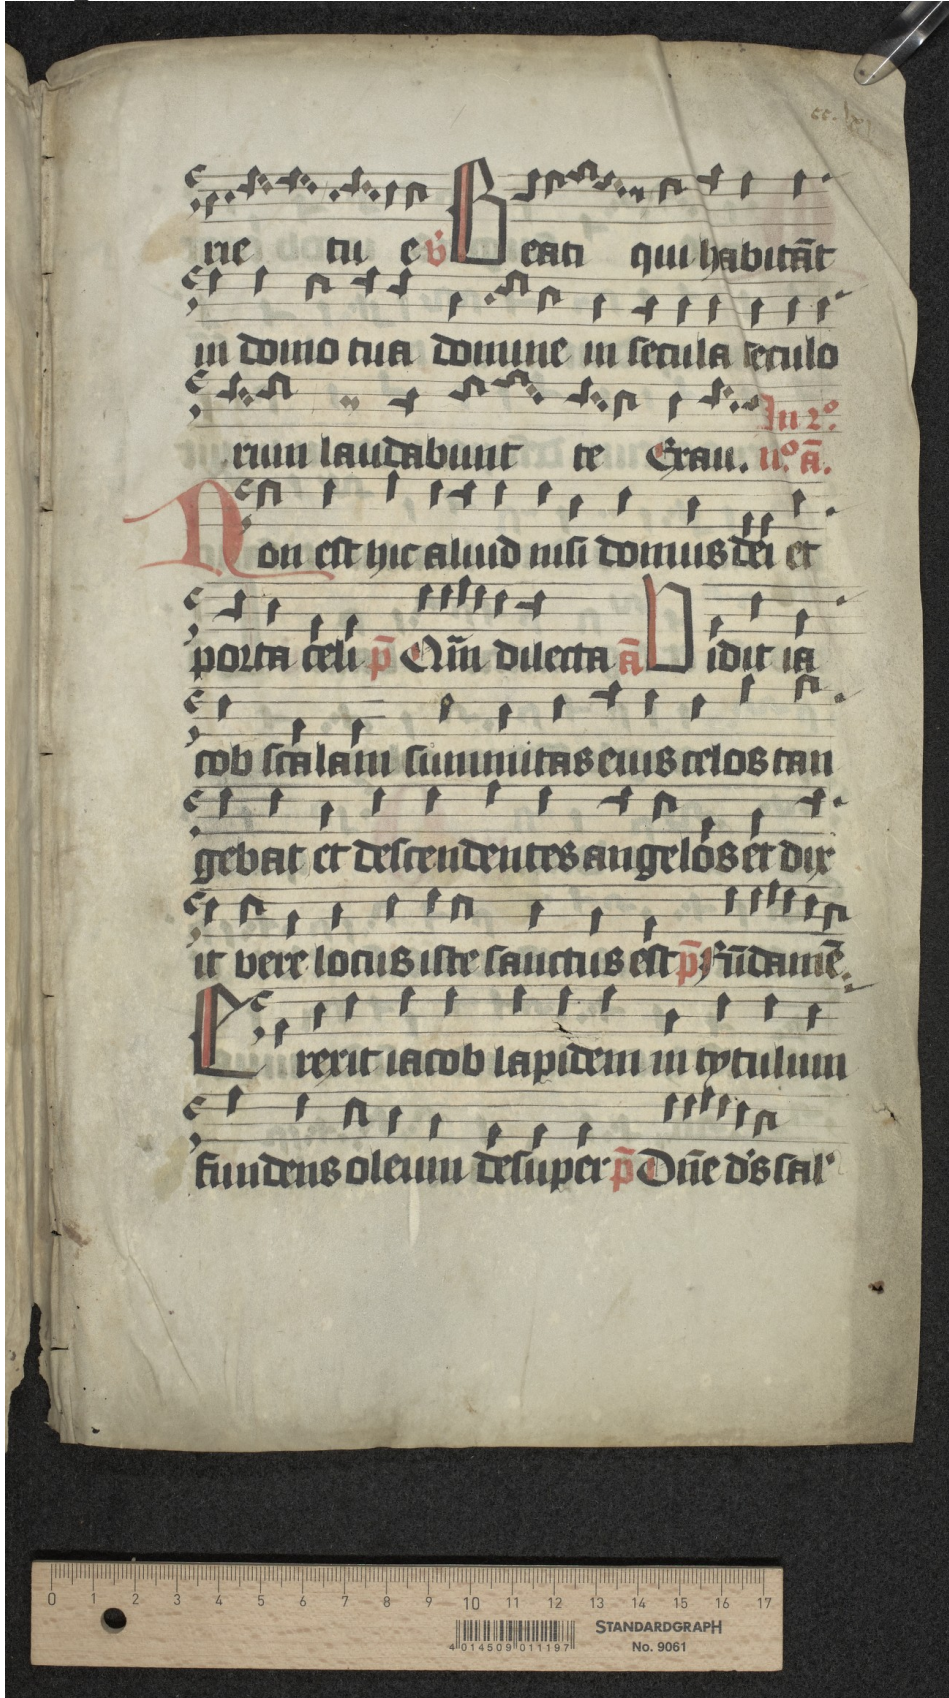 rie tu e v̇ Beati qui habitāt
in domo tua domine in secula seculo
rum laudabunt te Exau. In 2º
nº. ā.
Non est hic aliud nisi domus dei et
porta celi p̄ Qm̄ dilecta ā Uidit ia
cob scalam summitas eius celos tan
gebat et descendentes angelos et dix
it vere locus iste sanctus est p̄ Fūdamē.
Erexit iacob lapidem in tytulum
fundens oleum desuper p̄ Dn̄e d's sal'
0 1 2 3 4 5 6 7 8 9 10 11 12 13 14 15 16 17
4 014509 011197
STANDARDGRAPH
No. 9061